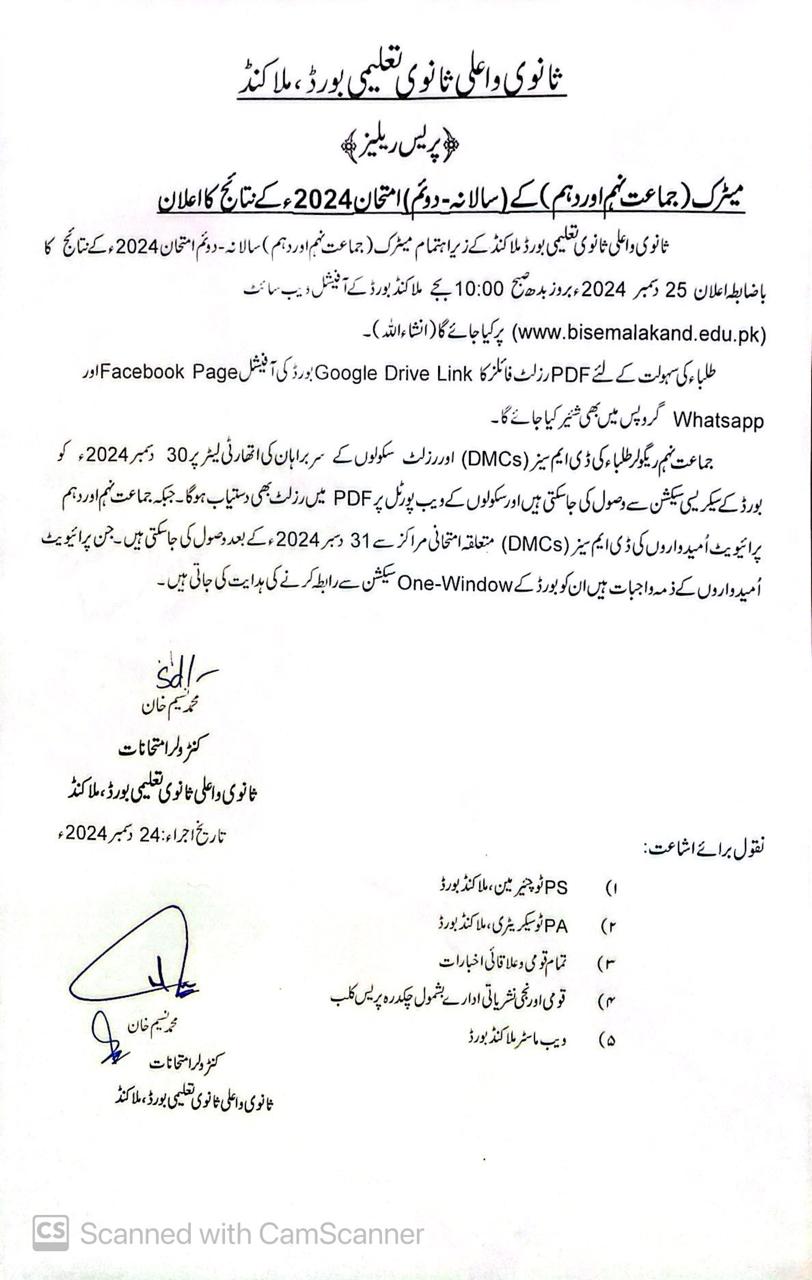 ثانوی واعلی ثانوی تعلیمی بورڈ، ملاکنڈ
﴿پریس ریلیز﴾
میٹرک (جماعت نہم اور دہم) کے (سالانہ-دوئم) امتحان 2024ء کے نتائج کا اعلان
ثانوی واعلی ثانوی تعلیمی بورڈ ملاکنڈ کے زیر اہتمام میٹرک (جماعت نہم اور دہم) سالانہ-دوئم امتحان 2024ء کے نتائج کا
باضابطہ اعلان 25 دسمبر 2024ء بروز بدھ صبح 10:00 بجے ملاکنڈ بورڈ کے آفیشل ویب سائٹ
(www.bisemalakand.edu.pk) پر کیا جائے گا (انشاءاللہ)۔
طلباء کی سہولت کے لئے PDF رزلٹ فائلز کا Google Drive Link بورڈ کی آفیشل Facebook Page اور
Whatsapp گروپس میں بھی شئیر کیا جائے گا۔
جماعت نہم ریگولر طلباء کی ڈی ایم سیز (DMCs) اور رزلٹ سکولوں کے سربراہان کی اتھارٹی لیٹر پر 30 دسمبر 2024ء کو
بورڈ کے سیکریسی سیکشن سے وصول کی جاسکتی ہیں اور سکولوں کے ویب پورٹل پر PDF میں رزلٹ بھی دستیاب ہوگا۔ جبکہ جماعت نہم اور دہم
پرائیویٹ اُمیدواروں کی ڈی ایم سیز (DMCs) متعلقہ امتحانی مراکز سے 31 دسمبر 2024ء کے بعد وصول کی جاسکتی ہیں۔ جن پرائیویٹ
اُمیدواروں کے ذمہ واجبات ہیں ان کو بورڈ کے One-Window سیکشن سے رابطہ کرنے کی ہدایت کی جاتی ہیں۔
sd/-
محمد نسیم خان
کنٹرولر امتحانات
ثانوی واعلی ثانوی تعلیمی بورڈ، ملاکنڈ
تاریخ اجراء: 24 دسمبر 2024ء
نقول برائے اشاعت:
۱) PS ٹو چئیرمین، ملاکنڈ بورڈ
۲) PA ٹو سیکریٹری، ملاکنڈ بورڈ
۳) تمام قومی و علاقائی اخبارات
۴) قومی اور نجی نشریاتی ادارے بشمول چکدرہ پریس کلب
۵) ویب ماسٹر ملاکنڈ بورڈ
محمد نسیم خان
کنٹرولر امتحانات
ثانوی واعلی ثانوی تعلیمی بورڈ، ملاکنڈ
CS Scanned with CamScanner